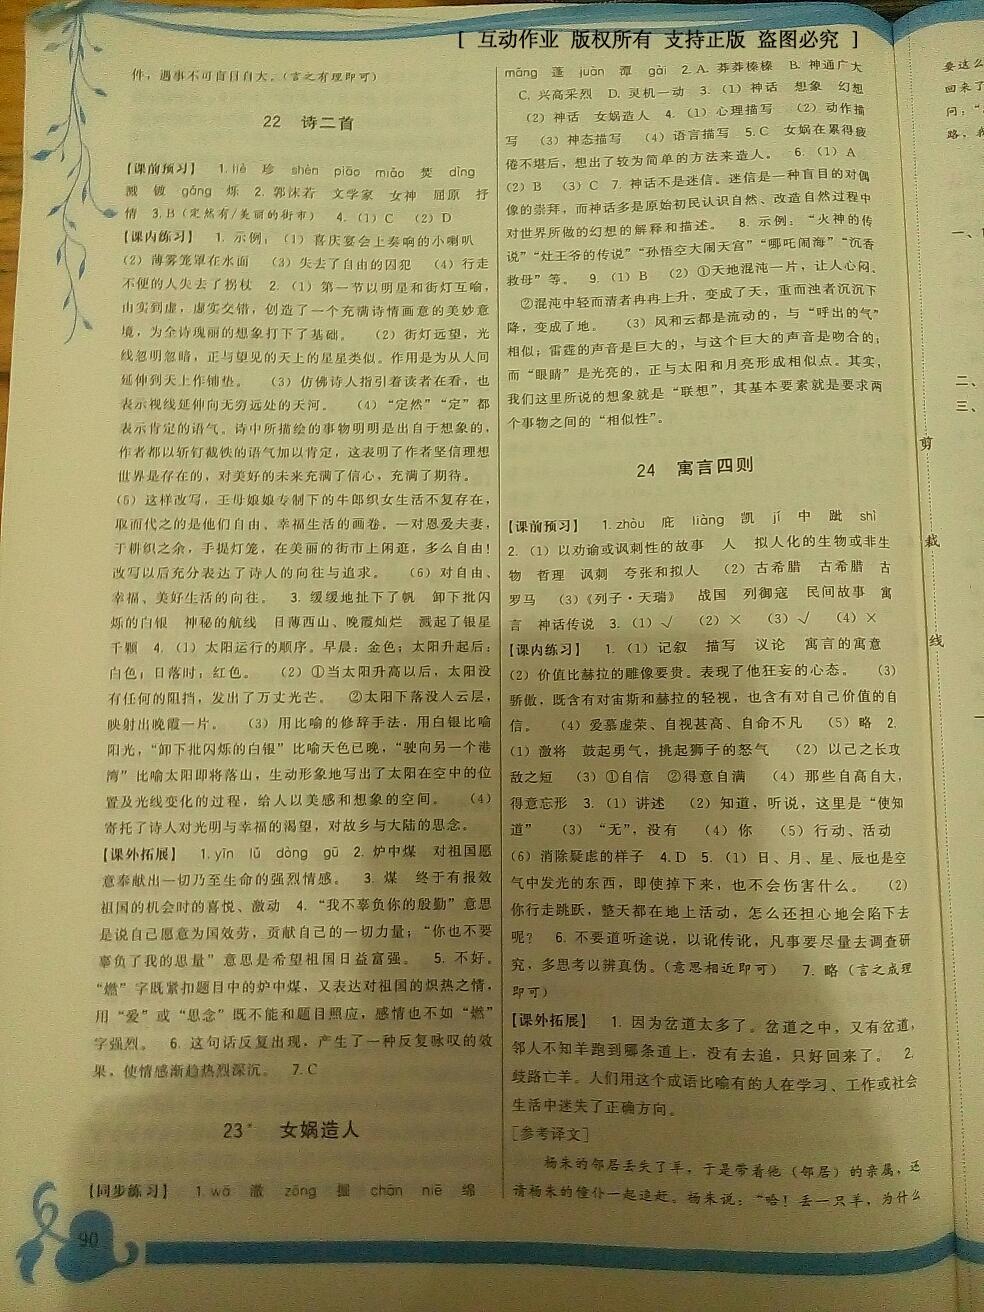 [ 互动作业 版权所有 支持正版 盗图必究 ]
件，遇事不可盲目自大。（言之有理即可）
22 诗二首
【课前预习】 1.liè 珍 shèn piāo miǎo 焚 dìng
溅 镀 gáng 烁 2.郭沫若 文学家 女神 屈原 抒
情 3.B（定然有/美丽的街市） 4.（1）C （2）D
【课内练习】 1.示例：（1）喜庆宴会上奏响的小喇叭
（2）薄雾笼罩在水面 （3）失去了自由的囚犯 （4）行走
不便的人失去了拐杖 2.（1）第一节以明星和街灯互喻，
由实到虚，虚实交错，创造了一个充满诗情画意的美妙意
境，为全诗瑰丽的想象打下了基础。 （2）街灯远望，光
线忽明忽暗，正与望见的天上的星星类似。作用是为从人间
延伸到天上作铺垫。 （3）仿佛诗人指引着读者在看，也
表示视线延伸向无穷远处的天河。 （4）“定然”“定”都
表示肯定的语气。诗中所描绘的事物明明是出自于想象的，
作者都以斩钉截铁的语气加以肯定，这表明了作者坚信理想
世界是存在的，对美好的未来充满了信心，充满了期待。
（5）这样改写，王母娘娘专制下的牛郎织女生活不复存在，
取而代之的是他们自由、幸福生活的画卷。一对恩爱夫妻，
于耕织之余，手提灯笼，在美丽的街市上闲逛，多么自由！
改写以后充分表达了诗人的向往与追求。 （6）对自由、
幸福、美好生活的向往。 3.缓缓地扯下了帆 卸下批闪
烁的白银 神秘的航线 日薄西山、晚霞灿烂 溅起了银星
千颗 4.（1）太阳运行的顺序。早晨：金色；太阳升起后：
白色；日落时：红色。 （2）①当太阳升高以后，太阳没
有任何的阻挡，发出了万丈光芒。 ②太阳下落没入云层，
映射出晚霞一片。 （3）用比喻的修辞手法，用白银比喻
阳光，“卸下批闪烁的白银”比喻天色已晚，“驶向另一个港
湾”比喻太阳即将落山，生动形象地写出了太阳在空中的位
置及光线变化的过程，给人以美感和想象的空间。 （4）
寄托了诗人对光明与幸福的渴望，对故乡与大陆的思念。
【课外拓展】 1.yīn lǔ dòng gū 2.炉中煤 对祖国愿
意奉献出一切乃至生命的强烈情感。 3.煤 终于有报效
祖国的机会时的喜悦、激动 4.“我不辜负你的殷勤”意思
是说自己愿意为国效劳，贡献自己的一切力量；“你也不要
辜负了我的思量”意思是希望祖国日益富强。 5.不好。
“燃”字既紧扣题目中的炉中煤，又表达对祖国的炽热之情，
用“爱”或“思念”既不能和题目照应，感情也不如“燃”
字强烈。 6.这句话反复出现，产生了一种反复咏叹的效
果，使情感渐趋热烈深沉。 7.C
23* 女娲造人
【同步练习】 1.wā 澈 zēng 掘 chān niē 绵
90
mǎng 蓬 juàn 潭 gài 2.A.莽莽榛榛 B.神通广大
C.兴高采烈 D.灵机一动 3.（1）神话 想象 幻想
（2）神话 女娲造人 4.（1）心理描写 （2）动作描
写 （3）神态描写 （4）语言描写 5.C 女娲在累得疲
倦不堪后，想出了较为简单的方法来造人。 6.（1）A
（2）B （3）C 7.神话不是迷信。迷信是一种盲目的对偶
像的崇拜，而神话多是原始初民认识自然、改造自然过程中
对世界所做的幻想的解释和描述。 8.示例：“火神的传
说”“灶王爷的传说”“孙悟空大闹天宫”“哪吒闹海”“沉香
救母”等。 9.（1）B （2）①天地混沌一片，让人心闷。
②混沌中轻而清者冉冉上升，变成了天，重而浊者沉沉下
降，变成了地。 （3）风和云都是流动的，与“呼出的气”
相似；雷霆的声音是巨大的，与这个巨大的声音是吻合的；
而“眼睛”是光亮的，正与太阳和月亮形成相似点。其实，
我们这里所说的想象就是“联想”，其基本要素就是要求两
个事物之间的“相似性”。
24 寓言四则
【课前预习】 1.zhòu 庇 liàng 凯 jí 中 跐 shì
2.（1）以劝谕或讽刺性的故事 人 拟人化的生物或非生
物 哲理 讽刺 夸张和拟人 （2）古希腊 古希腊 古
罗马 （3）《列子·天瑞》 战国 列御寇 民间故事 寓
言 神话传说 3.（1）√ （2）× （3）√ （4）×
【课内练习】 1.（1）记叙 描写 议论 寓言的寓意
（2）价值比赫拉的雕像要贵。表现了他狂妄的心态。 （3）
骄傲，既含有对宙斯和赫拉的轻视，也含有对自己价值的自
信。 （4）爱慕虚荣、自视甚高、自命不凡 （5）略 2.
（1）激将 鼓起勇气，挑起狮子的怒气 （2）以己之长攻
敌之短 （3）①自信 ②得意自满 （4）那些自高自大，
得意忘形 3.（1）讲述 （2）知道，听说，这里是“使知
道” （3）“无”，没有 （4）你 （5）行动、活动
（6）消除疑虑的样子 4.D 5.（1）日、月、星、辰也是空
气中发光的东西，即使掉下来，也不会伤害什么。 （2）
你行走跳跃，整天都在地上活动，怎么还担心地会陷下去
呢？ 6.不要道听途说，以讹传讹，凡事要尽量去调查研
究，多思考以辨真伪。（意思相近即可） 7.略（言之成理
即可）
【课外拓展】 1.因为岔道太多了。岔道之中，又有岔道，
邻人不知羊跑到哪条道上，没有去追，只好回来了。 2.
歧路亡羊。人们用这个成语比喻有的人在学习、工作或社会
生活中迷失了正确方向。
[参考译文]
杨朱的邻居丢失了羊，于是带着他（邻居）的亲属，还
请杨朱的僮仆一起追赶。杨朱说：“哈！丢一只羊，为什么
剪
裁
线
要这么
回来了
问：“
路，我
一、
二、
三、